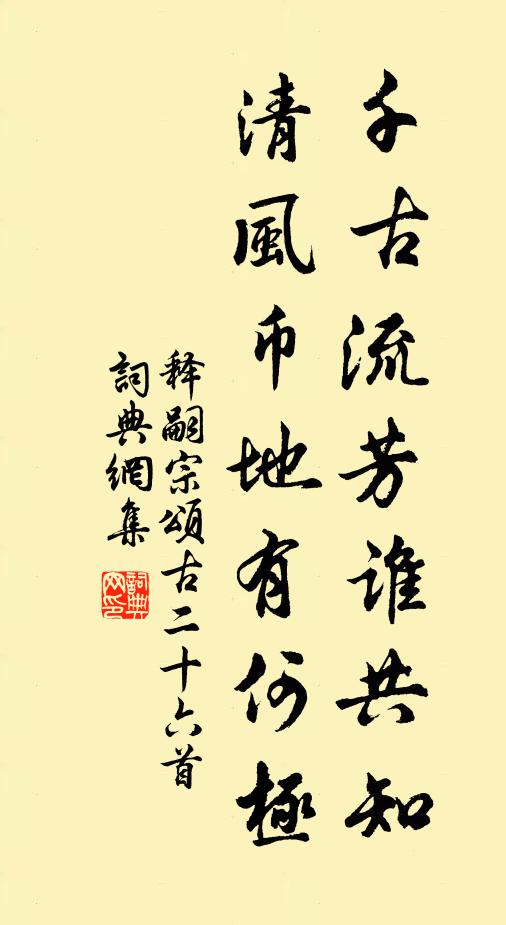 千古流芳谁共知
清風币地有何極
释嗣宗頌古二十六首
詞典網集
詞典網印